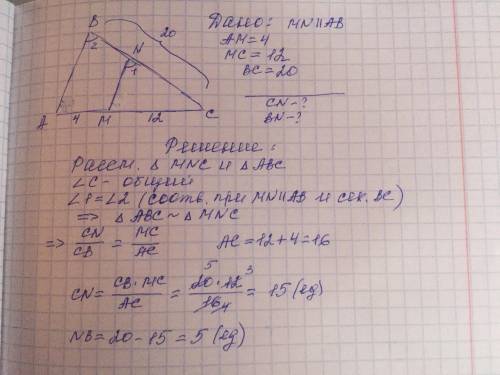 B
2
20
N
1
A
4
M
12
C
Дано: MN||AB
AM=4
MC=12
BC=20
CN-?
BN-?
Решение:
Рассм. △ MNC и △ ABC
∠C- общий
∠1=∠2 (соотв. при MN||AB и сек. BC)
=> △ ABC ~ △ MNC
=> CN/CB = MC/AC AC=12+4=16
CN= CB·MC/AC = 20·12/16 = 15 (ед)
5 3 4
NB=20-15=5 (ед)